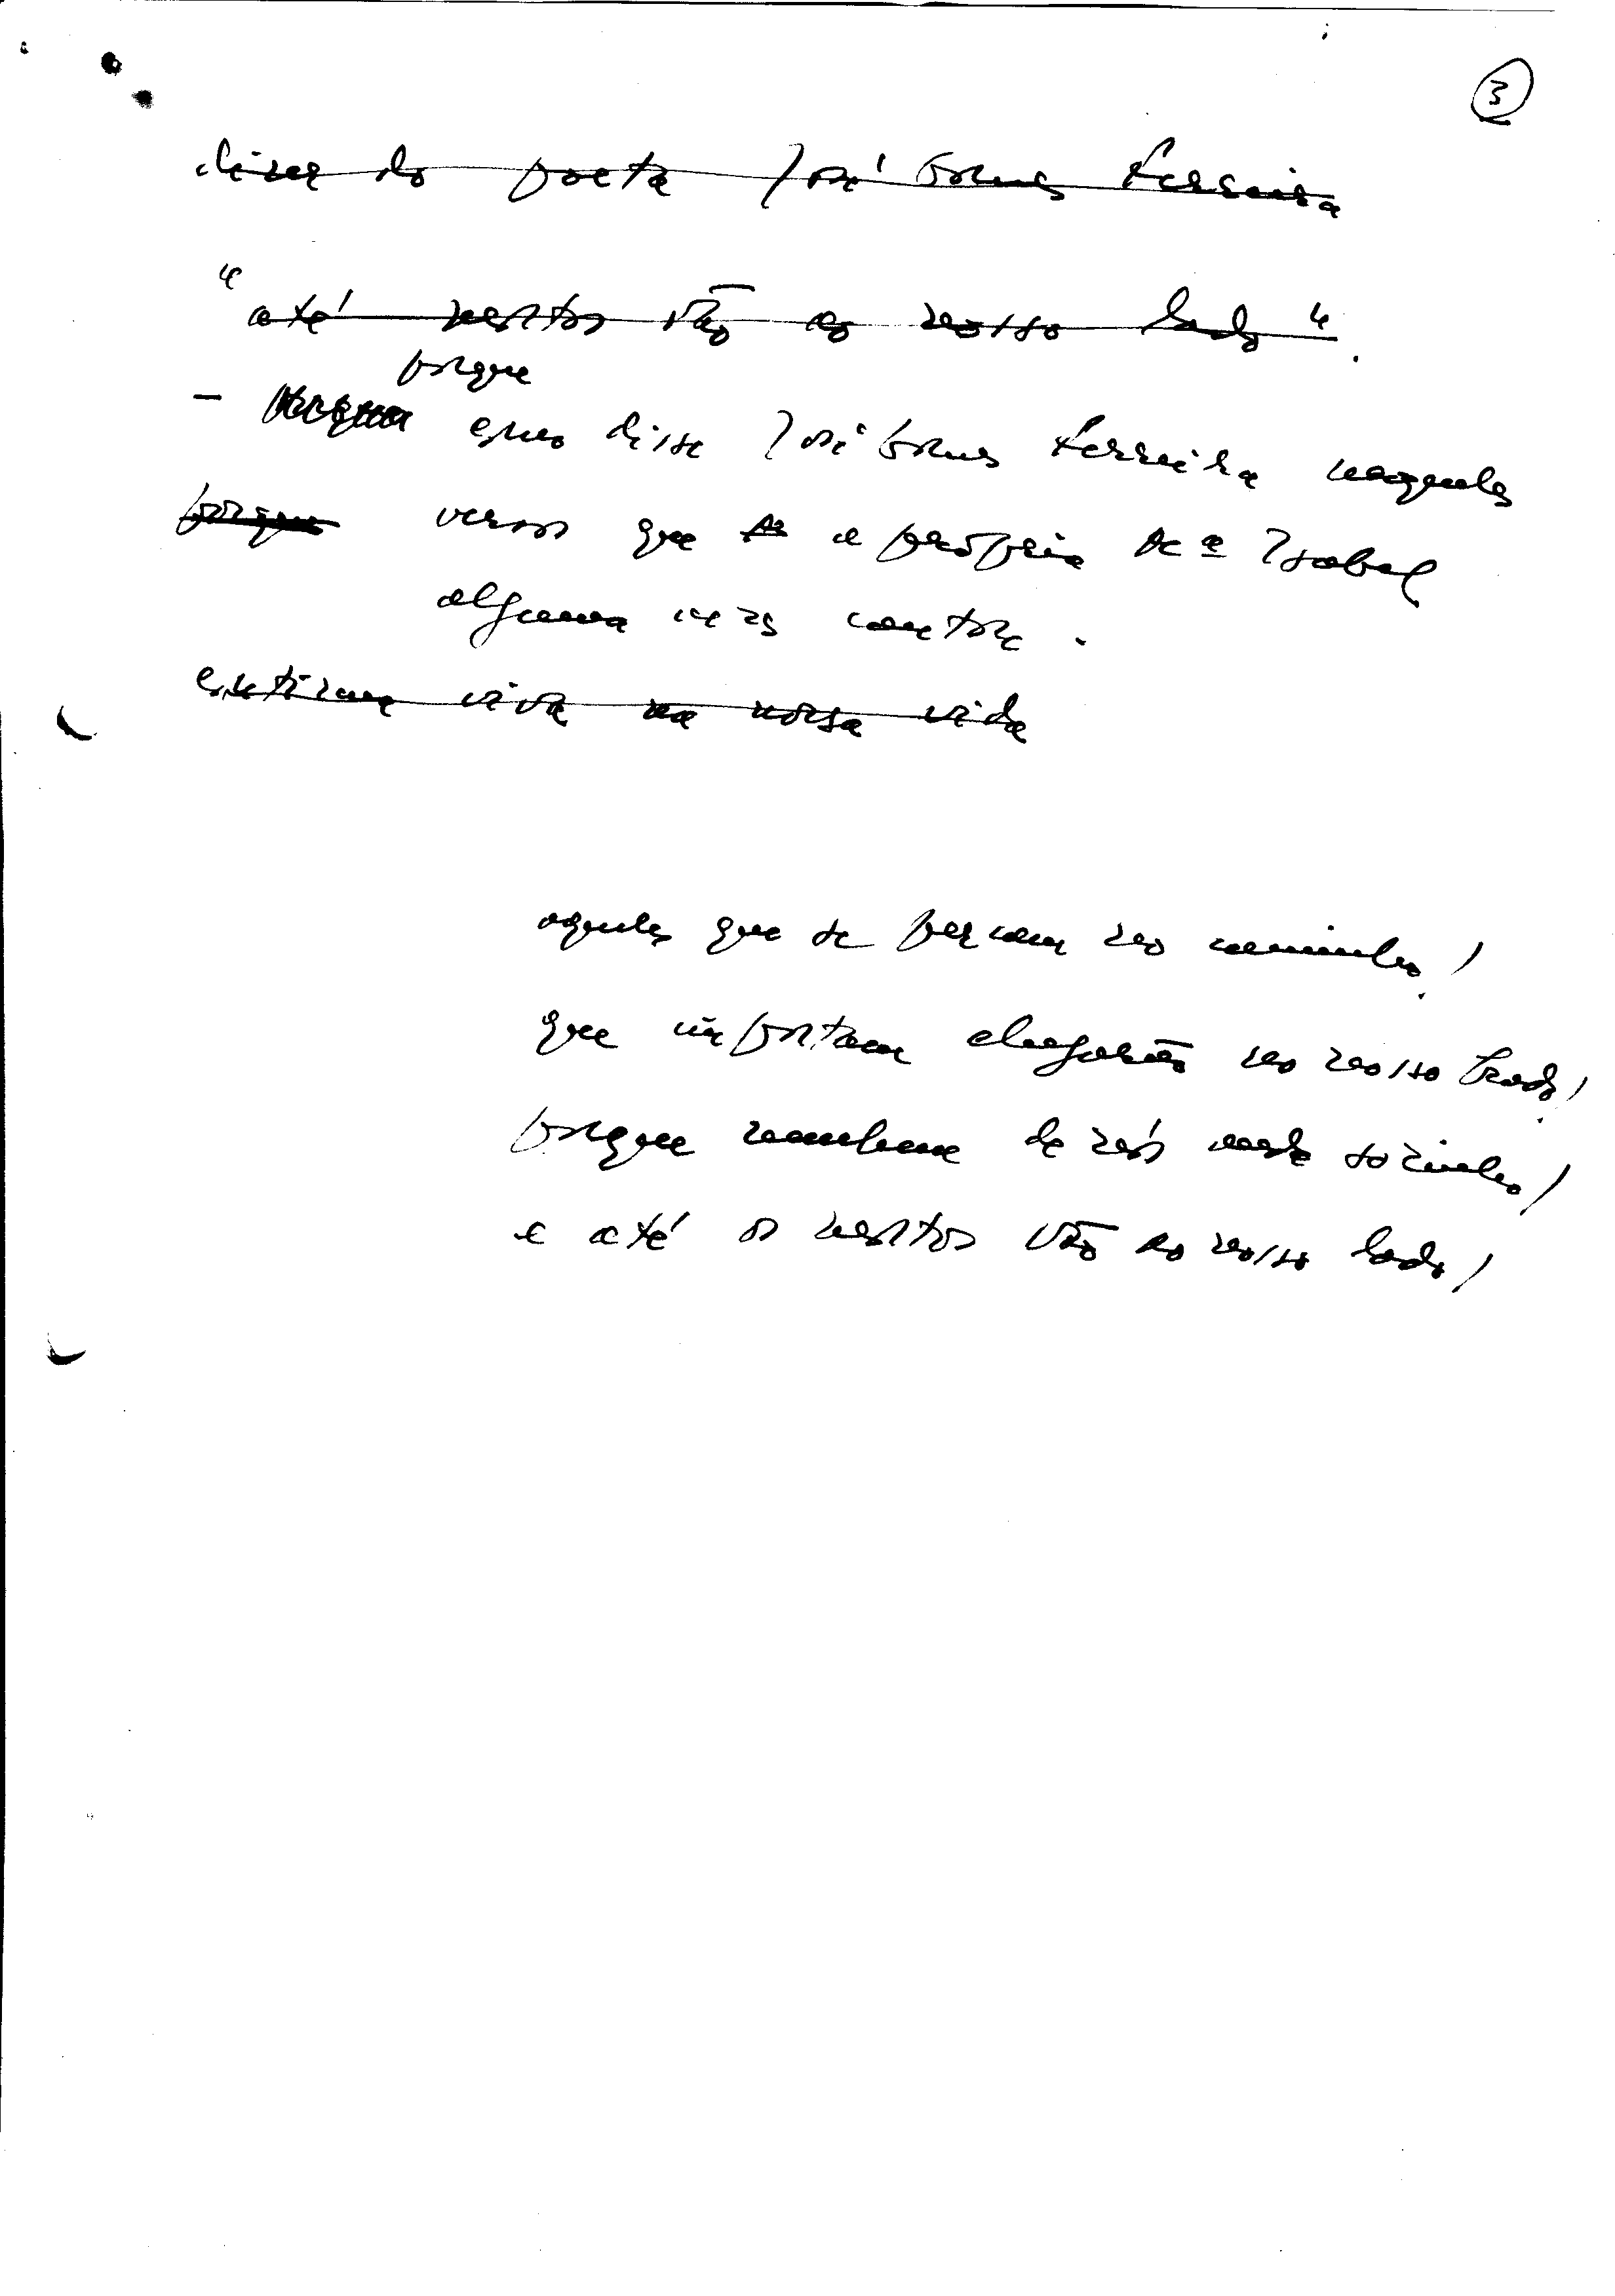 3
dizer do poeta José Gomes Ferreira
"até mortos vão ao nosso lado".
porque
- como disse José Gomes Ferreira naqueles
porque versos que a própria Mª Isabel
alguma vez cantou.
continua viva na nossa vida
aqueles que se percam no caminho/
que importam chegarão no nosso brado/
porque nenhum de nós anda sozinho/
e até os mortos vão ao nosso lado/